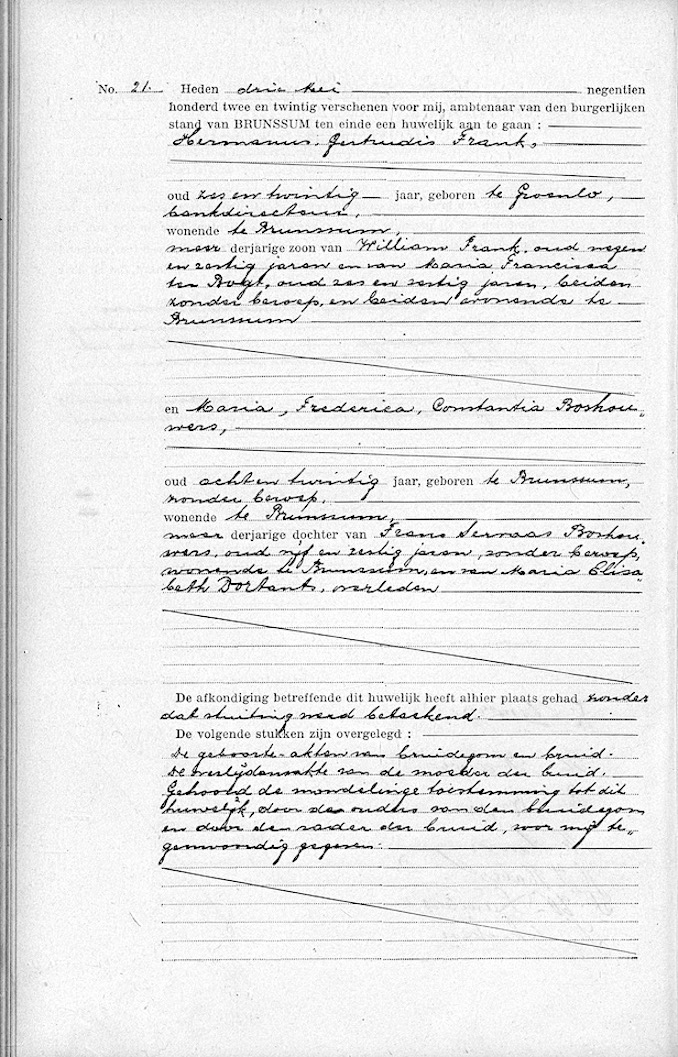 No. 21. Heden drie Mei negentien
honderd twee en twintig verschenen voor mij, ambtenaar van den burgerlijken
stand van BRUNSSUM ten einde een huwelijk aan te gaan :
Hermanus, Gertrudis Frank,
oud zes en twintig jaar, geboren te Groenlo,
bankdirecteur,
wonende te Brunssum,
meer derjarige zoon van William Frank, oud negen
en zestig jaren en van Maria Francisca
ten Bogt, oud zes en zestig jaren, beiden
zonder beroep, en beiden wonende te
Brunssum
en Maria, Frederica, Constantia Boshou„
wers,
oud acht en twintig jaar, geboren te Brunssum,
zonder beroep,
wonende te Brunssum,
meer derjarige dochter van Frans Servaas Boshou„
wers, oud vijf en zestig jaren, zonder beroep,
wonende te Brunssum, en van Maria Elisa„
beth Dortants, overleden
De afkondiging betreffende dit huwelijk heeft alhier plaats gehad zonder
dat stuiting werd beteekend.
De volgende stukken zijn overgelegd :
De geboorte-akten van bruidegom en bruid.
De overlijdensakte van de moeder der bruid.
Gehoord de mondelinge toestemming tot dit
huwelijk, door de ouders van den bruidegom
en door den vader der bruid, voor mij te„
genwoordig gegeven.